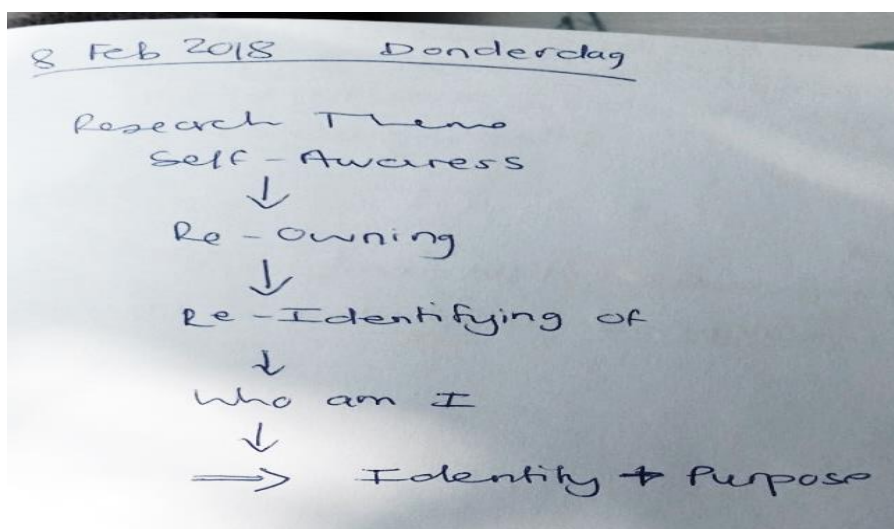 8 Feb 2018 Donderdag
Research Theme
Self-Awaress
↓
Re-Owning
↓
Re-Identifying of
↓
Who am I
↓
⇒ Identity + Purpose